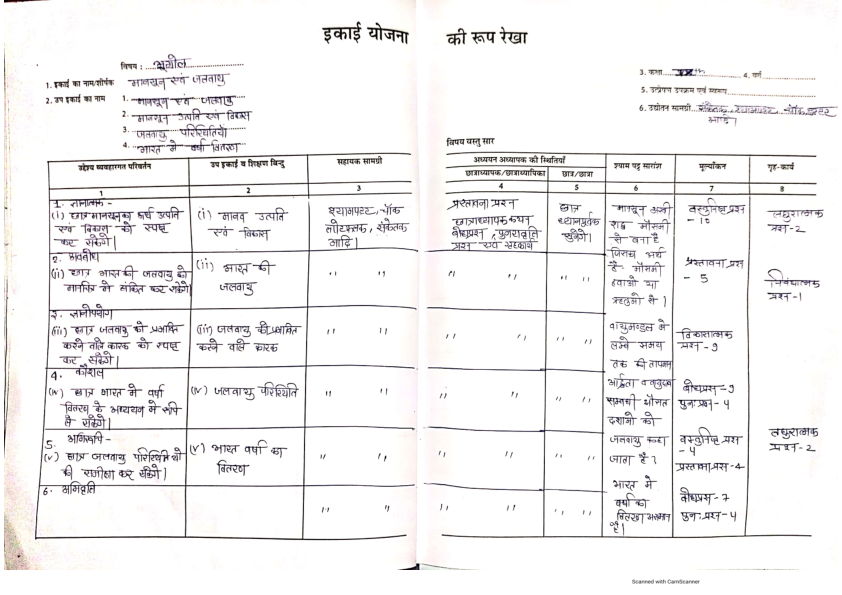 इकाई योजना की रूप रेखा
विषय : भूगोल
1. इकाई का नाम/शीर्षक मानसून एवं जलवायु
2. उप इकाई का नाम 1. मानसून एवं जलवायु
2. मानसून उत्पति एवं विकास
3. जलवायु परिस्थितियाँ
4. भारत में वर्षा वितरण
3. कक्षा 4. वर्ग
5. उत्प्रेरण उपक्रम एवं
6. उद्योतन सामग्री संकेतक, श्यामपट्ट, चॉक डस्टर
आदि।
विषय वस्तु सार
उद्देश्य व्यवहारगत परिवर्तन
उप इकाई व शिक्षण बिन्दु
सहायक सामग्री
अध्ययन अध्यापक की स्थितियाँ
छात्राध्यापक/छात्राध्यापिका
छात्र/छात्रा
श्याम पट्ट सारांश
मूल्याँकन
गृह-कार्य
1 2 3 4 5 6 7 8
1. ज्ञानात्मक-
(i) छात्र मानसून का अर्थ उत्पति
एवं विकास को स्पष्ट
कर सकेंगे।
(i) मानव उत्पति
एवं विकास
श्यामपट्ट, चॉक
संकेतक
आदि।
प्रस्तावना प्रश्न
छात्राध्यापक कथन
बोधप्रश्न, पुनरावृति
प्रश्न एवं सहकार्य
छात्र
ध्यानपूर्वक
सुनेंगे।
मानसून अरबी
शब्द मौसमी
से बना है
जिसका अर्थ
है- मौसमी
हवाओं या
ऋतुओं से।
वस्तुनिष्ठ प्रश्न
- 10
लघुरात्मक
प्रश्न-2
2. अवबोध
(ii) छात्र भारत की जलवायु को
मानचित्र में अंकित कर सकेंगे
(ii) भारत की
जलवायु
" "
" "
" "
प्रस्तावना प्रश्न
- 5
निबंधात्मक
प्रश्न-1
3. ज्ञानोपयोग
(iii) छात्र जलवायु को प्रभावित
करने वाले कारक को स्पष्ट
कर सकेंगे।
(iii) जलवायु को प्रभावित
करने वाले कारक
" "
" "
" "
वायुमण्डल में
लम्बे समय
तक की तापमान
आर्द्रता व वायुदाब
सम्बन्धी औसत
दशाओं को
विकासात्मक
प्रश्न-9
4. कौशल
(iv) छात्र भारत में वर्षा
वितरण के अध्ययन में रुचि
ले सकेंगे।
(iv) जलवायु परिस्थिति
" "
" "
" "
बोधप्रश्न-9
पुनःप्रश्न-4
5. अभिरुचि-
(v) छात्र जलवायु परिस्थितियों
की समीक्षा कर सकेंगे।
(v) भारत वर्षा का
वितरण
" "
" "
" "
जलवायु कहा
जाता है?
वस्तुनिष्ठ प्रश्न
- 4
प्रस्तावना प्रश्न-4
लघुरात्मक
प्रश्न-2
6. अभिवृति
" "
" "
" "
भारत में
वर्षा का
वितरण असमान
है।
बोधप्रश्न-7
पुनःप्रश्न-4
Scanned with CamScanner